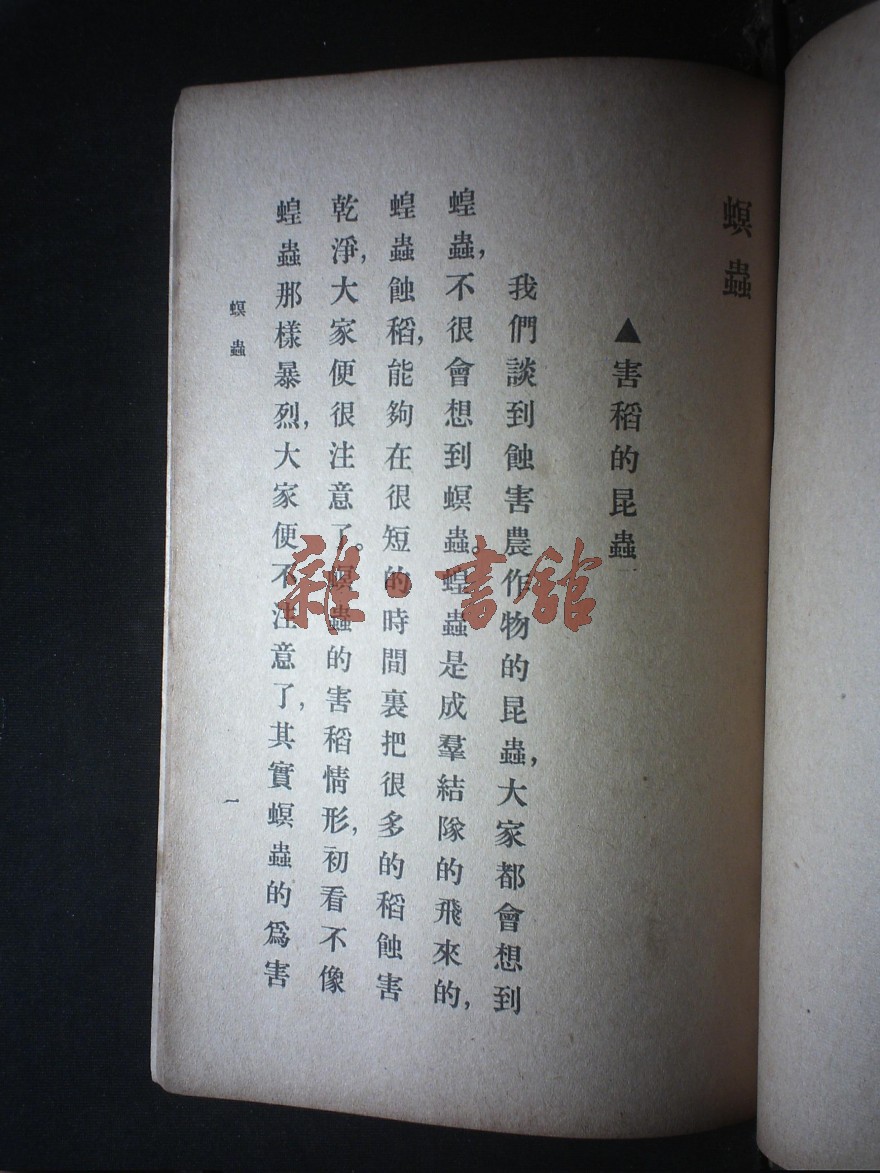 螟蟲
▲害稻的昆蟲
我們談到蝕害農作物的昆蟲，大家都會想到
蝗蟲，不很會想到螟蟲。蝗蟲是成羣結隊的飛來的，
蝗蟲蝕稻，能夠在很短的時間裏把很多的稻蝕害
乾淨，大家便很注意了。螟蟲的害稻情形，初看不像
蝗蟲那樣暴烈，大家便不注意了，其實螟蟲的爲害
螟蟲
一
雜·書館